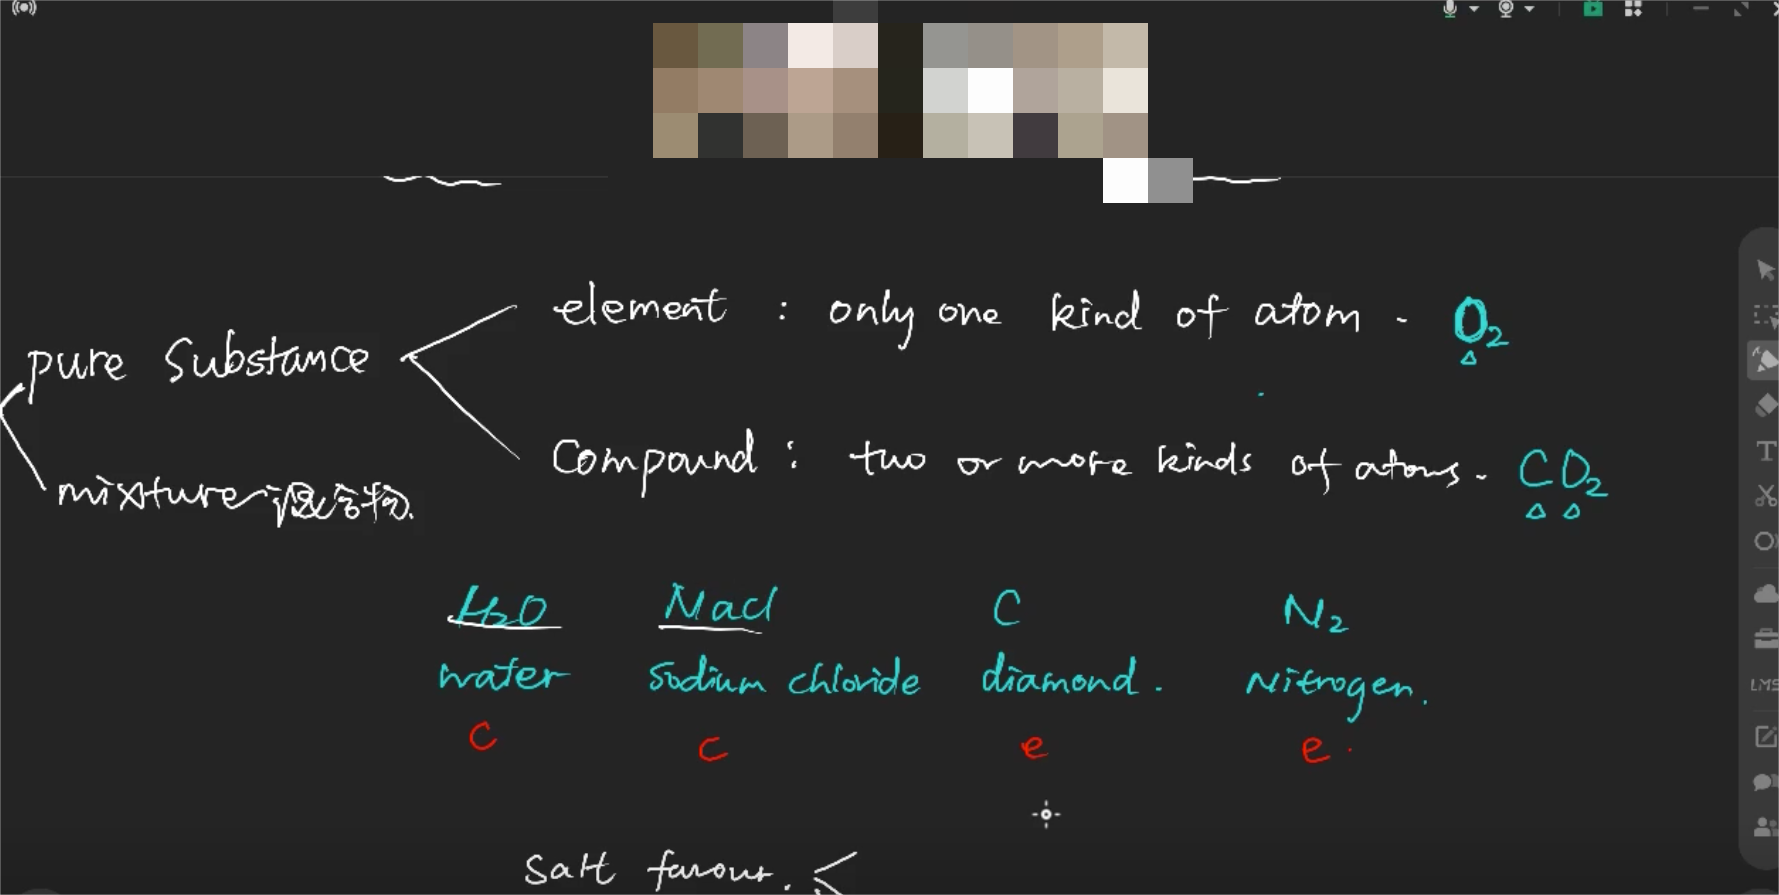 element : only one kind of atom. O₂
pure substance
Compound : two or more kinds of atoms. CO₂
mixture 混合物.
H₂O Nacl C N₂
water sodium chloride diamond. Nitrogen.
c c e e.
salt
LMS